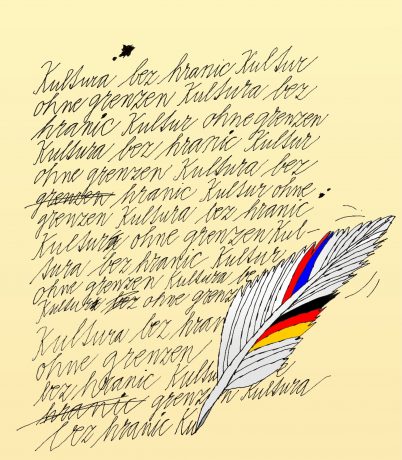 Kultura bez hranic Kultur
ohne grenzen Kultura bez
hranic Kultur ohne grenzen
Kultura bez hranic Kultur
ohne grenzen Kultura bez
grenzen hranic Kultur ohne
grenzen Kultura bez hranic
Kultura ohne grenzen Kul-
tura bez hranic Kultur
ohne grenzen Kultura bez
Kultura bez ohne grenze
Kultura bez hran
ohne grenzen
bez hranic Kultu ne
hranic grenzen Kultura
bez hranic Ku